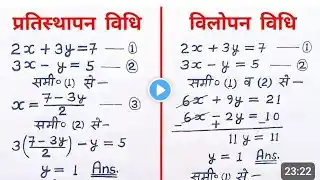 प्रतिस्थापन विधि
2x + 3y = 7 — ①
3x - y = 5 — ②
समी० (1) से -
x = 7 - 3y / 2 — ③
समी० (2) से -
3(7 - 3y / 2) - y = 5
y = 1 Ans.
विलोपन विधि
2x + 3y = 7 — ①
3x - y = 5 — ②
समी० (1) व (2) से -
6x + 9y = 21
6x - 2y = 10
- + -
11y = 11
y = 1 Ans.
समी० (1) से -
23:22